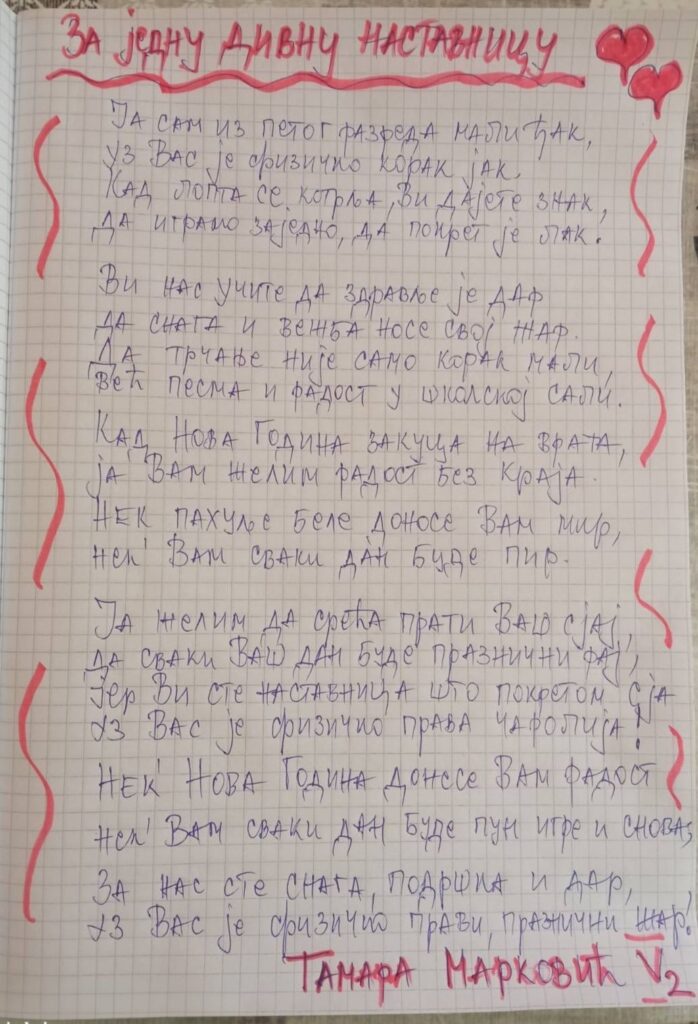 За једну дивну наставницу
Ја сам из петог разреда мали ђак,
уз Вас је физичко корак јак.
Кад лопта се котрља, Ви дајете знак,
да играмо заједно, да покрет је лак.
Ви нас учите да здравље је дар
да снага и вежба носе свој жар.
Да трчање није само корак мали,
већ песма и радост у школској сали.
Кад Нова Година закуца на врата,
ја Вам желим радост без краја.
Нек пахуље беле доносе Вам мир,
нек' Вам сваки дан буде пир.
Ја желим да срећа прати Ваш сјај,
да сваки Ваш дан буде празнични рај,
Јер Ви сте наставница што покретом сја
уз Вас је физичко права чаролија!
Нек' Нова Година донесе Вам радост
нек' Вам сваки дан буде пун игре и снова,
За нас сте снага, подршка и дар,
уз Вас је физичко прави, празнични жар!
Тамара Марковић V2